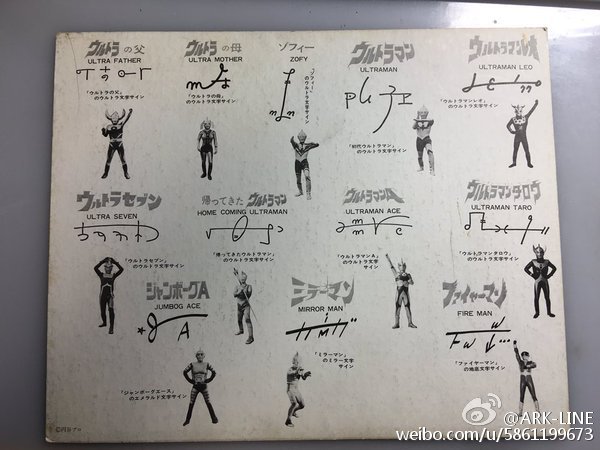 ウルトラの父
ULTRA FATHER
「ウルトラの父」
のウルトラ文字サイン
ウルトラの母
ULTRA MOTHER
「ウルトラの母」
のウルトラ文字サイン
ゾフィー
ZOFY
「ゾフィー」
のウルトラ文字サイン
ウルトラマン
ULTRAMAN
「初代ウルトラマン」
のウルトラ文字サイン
ウルトラマンレオ
ULTRAMAN LEO
「ウルトラマンレオ」
のウルトラ文字サイン
ウルトラセブン
ULTRA SEVEN
「ウルトラセブン」
のウルトラ文字サイン
帰ってきたウルトラマン
HOME COMING ULTRAMAN
「帰ってきたウルトラマン」
のウルトラ文字サイン
ウルトラマンA
ULTRAMAN ACE
「ウルトラマンA」
のウルトラ文字サイン
ウルトラマンタロウ
ULTRAMAN TARO
「ウルトラマンタロウ」
のウルトラ文字サイン
ジャンボーグA
JUMBOG ACE
「ジャンボーグエース」
のエメラルド文字サイン
ミラーマン
MIRROR MAN
「ミラーマン」
のミラー文字
サイン
ファイヤーマン
FIRE MAN
「ファイヤーマン」
の地底文字サイン
©円谷プロ
@ARK-LINE
weibo.com/u/5861199673